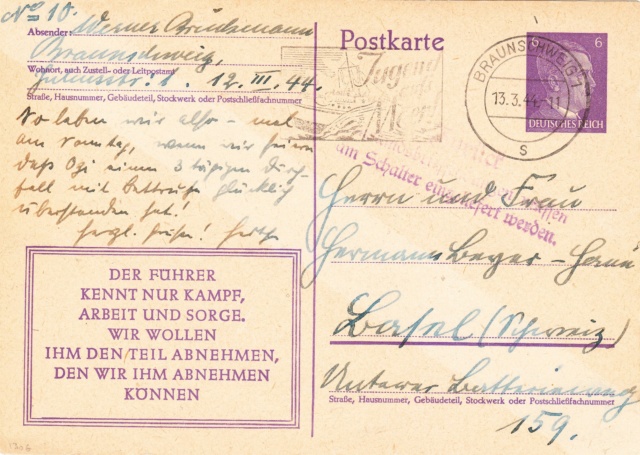 No 10.
Absender: Werner Brinkmann
Braunschweig,
Wohnort, auch Zustell- oder Leitpostamt
12. III. 44.
Straße, Hausnummer, Gebäudeteil, Stockwerk oder Postschließfachnummer
So leben wir also – mal
am Sonntag, wenn wir feiern
daß Ogi einen 3 tägigen Durch-
fall mit Bettruhe glücklich
überstanden hat!
Herzl. Grüße!
DER FÜHRER
KENNT NUR KAMPF,
ARBEIT UND SORGE.
WIR WOLLEN
IHM DEN TEIL ABNEHMEN,
DEN WIR IHM ABNEHMEN
KÖNNEN
Postkarte
Jugend
aufs
Meer
BRAUNSCHWEIG 1
13.3.44.-11
s
6
DEUTSCHES REICH
zurück
müssen
am Schalter eingeliefert werden.
Herrn und Frau
Hermann Beyer-
Basel (Schweiz)
Unterer Batterieweg
Straße, Hausnummer, Gebäudeteil, Stockwerk oder Postschließfachnummer
159.